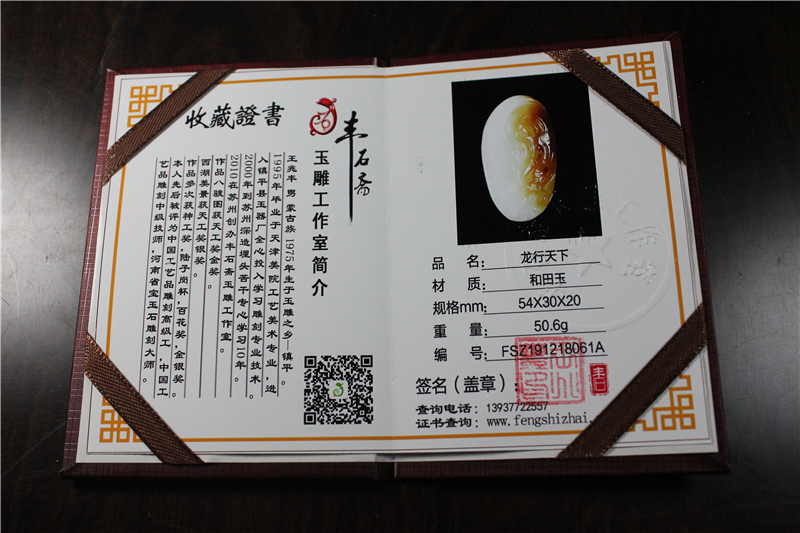 收藏證書
丰石斋
玉雕工作室简介
王兆丰 男 蒙古族 1975年生于玉雕之乡—镇平。
1995年毕业于天津美院工艺美术专业，进
入镇平县玉器厂全心投入学习雕刻专业技术。
2000年到苏州深造埋头苦干专心学习10年。
2010在苏州创办丰石斋玉雕工作室。
作品八骏图获天工奖金奖。
西湖美景获天工奖银奖。
作品多次获神工奖，陆子岗杯，百花奖，金银奖。
本人先后被评为中国工艺品雕刻高级工，中国工
艺品雕刻中级技师，河南省宝玉石雕刻大师。
品 名： 龙行天下
材 质： 和田玉
规格mm： 54X30X20
重 量： 50.6g
编 号： FSZ191218061A
签名（盖章）：
查询电话： 13937722557
证书查询： www.fengshizhai.